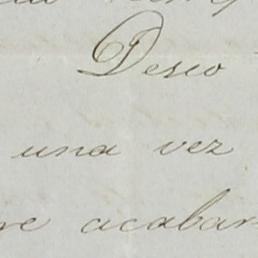 Deseo
una vez
re acabar